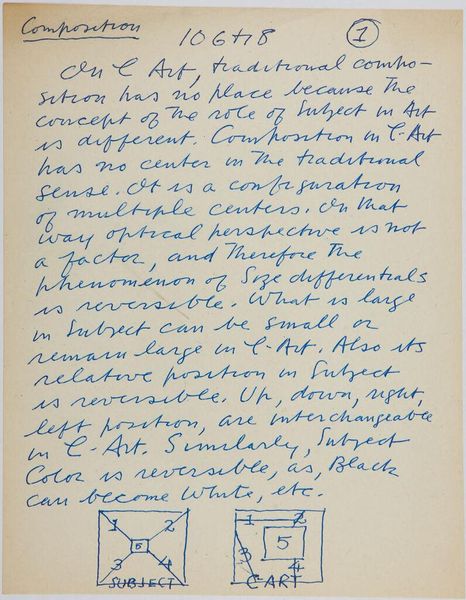 Composition ①
In C Art, traditional compo-
sition has no place because the
concept of the role of Subject in Art
is different. Composition in C-Art
has no center in the traditional
sense. It is a configuration
of multiple centers. In that
way optical perspective is not
a factor, and therefore the
phenomenon of Size differentials
is reversible. What is large
in Subject can be small or
remain large in C-Art. Also its
relative position in Subject
is reversible. Up, down, right,
left position, are interchangeable
in C-Art. Similarly, Subject
Color is reversible, as, Black
can become White, etc.
1 2 5 3 4
SUBJECT
1 2 3 5 4
C-ART